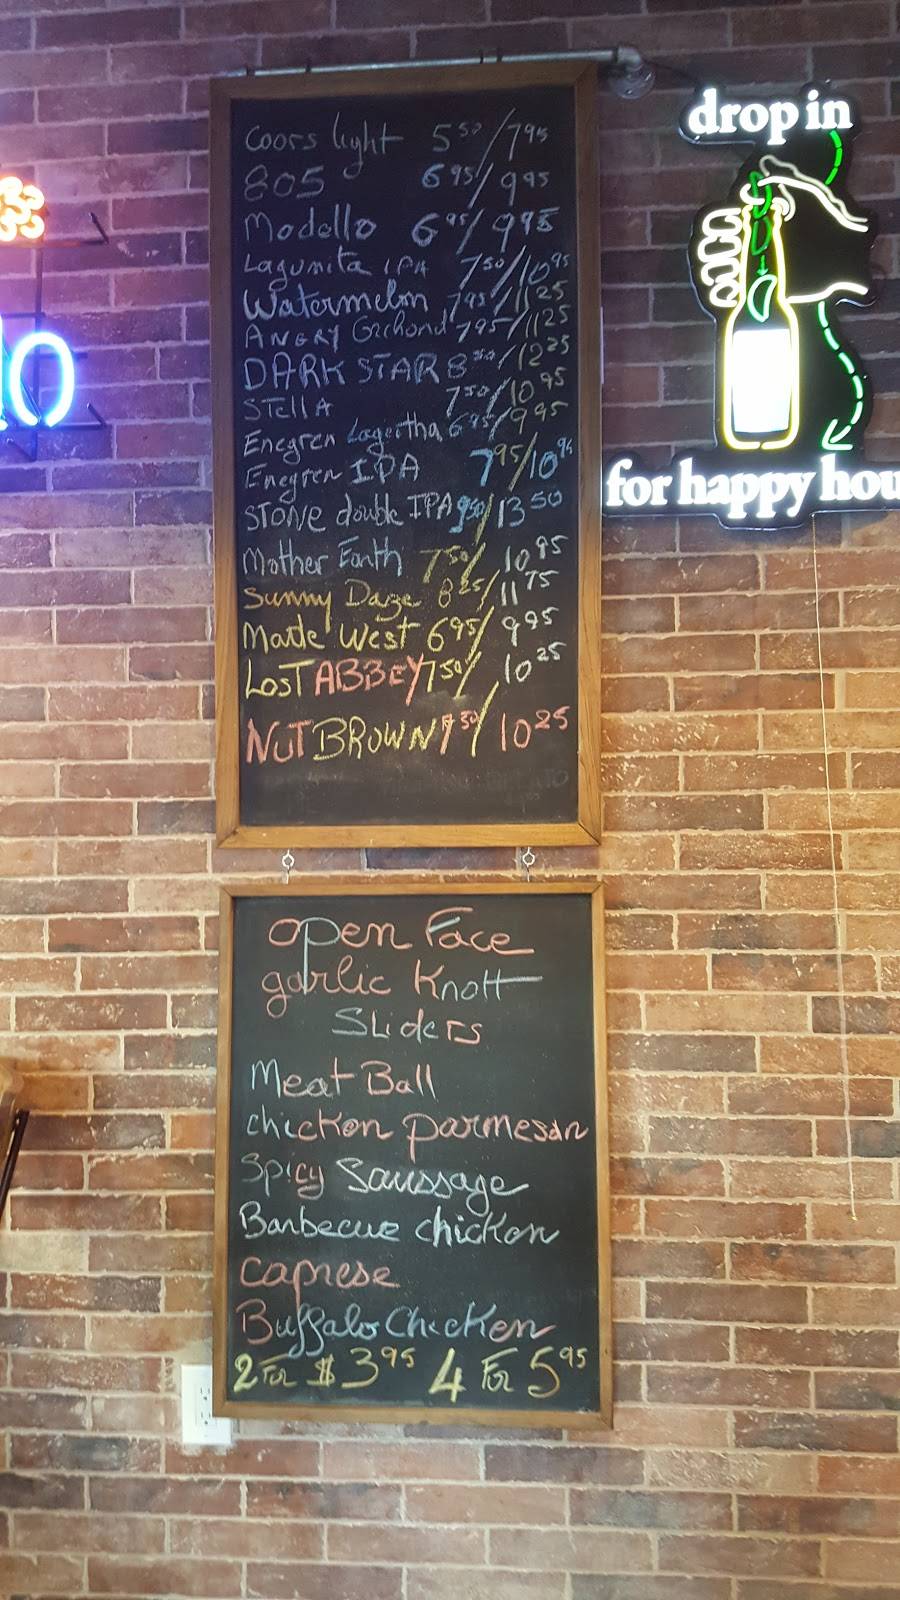 Coors light 5 50/7 95
805 6 95/9 95
Modello 6 95/9 95
Lagunita IPA 7 50/10 95
Watermelon 7 95/11 25
ANGRY Orchond 7 95/11 25
DARK STAR 8 50/12 25
STellA 7 50/10 95
Enegren Lagertha 6 95/9 95
Enegren IPA 7 95/10 95
STONE double IPA 9 50/13 50
Mother Earth 7 50/10 95
Sunny Daze 8 25/11 75
Made West 6 95/9 95
LOST ABBEY 7 50/10 25
NUT BROWN 7 50/10 25
open Face
garlic Knott
SLiders
Meat Ball
chicken parmesan
Spicy Saussage
Barbecue chicken
caprese
Buffalo Chicken
2 For $3 95 4 For 5 95
drop in
for happy hou
lo